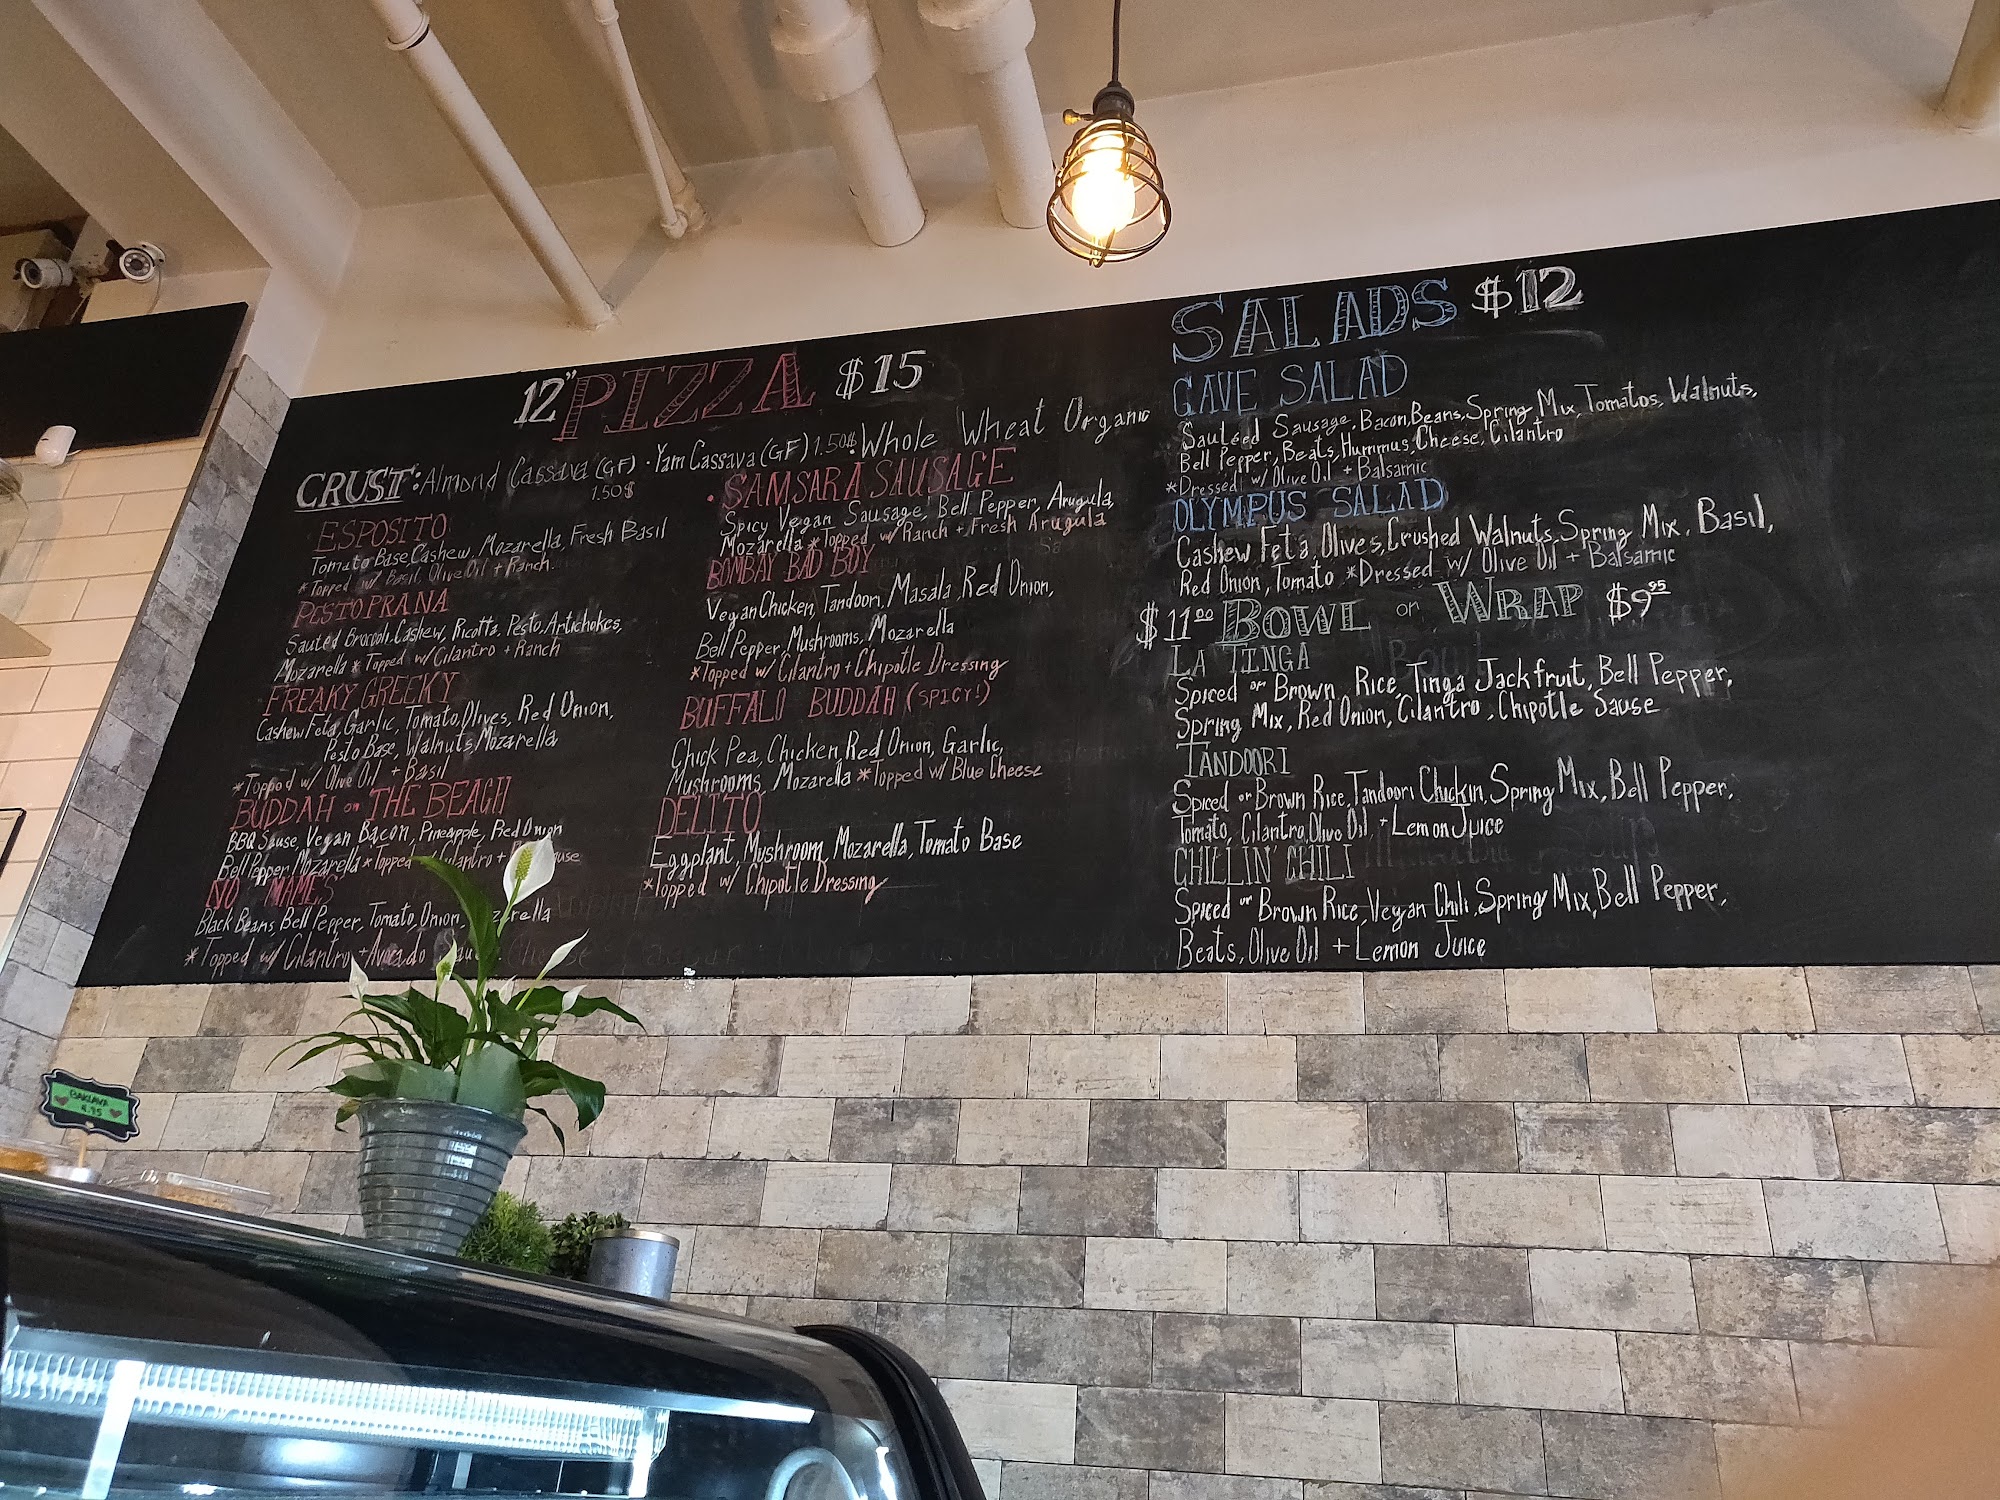 12" PIZZA $15
CRUST: Almond Cassava (GF) · Yam Cassava (GF) 1.50$ · Whole Wheat Organic
1.50$
ESPOSITO
Tomato Base, Cashew, Mozarella, Fresh Basil
*Topped w/ Basil, Olive Oil + Ranch.
PESTO PRANA
Sauted Broccoli, Cashew, Ricotta, Pesto, Artichokes,
Mozarella *Topped w/ Cilantro + Ranch
FREAKY GREEKY
Cashew Feta, Garlic, Tomato, Olives, Red Onion,
Pesto Base, Walnuts, Mozarella
*Topped w/ Olive Oil + Basil
BUDDAH on THE BEACH
BBQ Sause, Vegan Bacon, Pineapple, Red Onion
Bell Pepper, Mozarella *Topped w/ Cilantro +
NO MAMES
Black Beans, Bell Pepper, Tomato, Onion,
*Topped w/ Cilantro + Avocado
· SAMSARA SAUSAGE
Spicy Vegan Sausage, Bell Pepper, Arugula,
Mozarella *Topped w/ Ranch + Fresh Arugula
BOMBAY BAD BOY
Vegan Chicken, Tandoori, Masala, Red Onion,
Bell Pepper, Mushrooms, Mozarella
*Topped w/ Cilantro + Chipotle Dressing
BUFFALO BUDDAH (SPICY!)
Chick Pea, Chicken, Red Onion, Garlic,
Mushrooms, Mozarella *Topped w/ Blue Cheese
DELITO
Eggplant, Mushroom, Mozarella, Tomato Base
*Topped w/ Chipotle Dressing
SALADS $12
CAVE SALAD
Sauteed Sausage, Bacon, Beans, Spring Mix, Tomatos, Walnuts,
Bell Pepper, Beats, Hummus, Cheese, Cilantro
*Dressed w/ Olive Oil + Balsamic
OLYMPUS SALAD
Cashew Feta, Olives, Crushed Walnuts, Spring Mix, Basil,
Red Onion, Tomato *Dressed w/ Olive Oil + Balsamic
$11.00 BOWL or WRAP $9.95
LA TINGA
Spiced or Brown Rice, Tinga Jackfruit, Bell Pepper,
Spring Mix, Red Onion, Cilantro, Chipotle Sause
TANDOORI
Spiced or Brown Rice, Tandoori Chickin, Spring Mix, Bell Pepper,
Tomato, Cilantro, Olive Oil, + Lemon Juice
CHILLIN' CHILI
Spiced or Brown Rice, Vegan Chili, Spring Mix, Bell Pepper,
Beats, Olive Oil + Lemon Juice
BAKLAVA
4.95